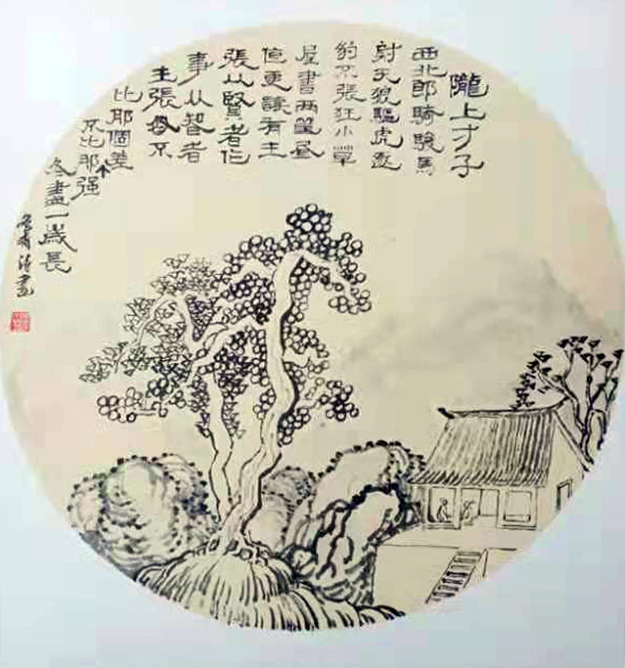 隴上才子
西北郎騎駿馬
射天狼驅虎逐
豹不張狂小草
屋書兩筐
更讀有主
張以賢者作
事以智者
主張不
比那個差
不比那強
冬盡一歲長
畫